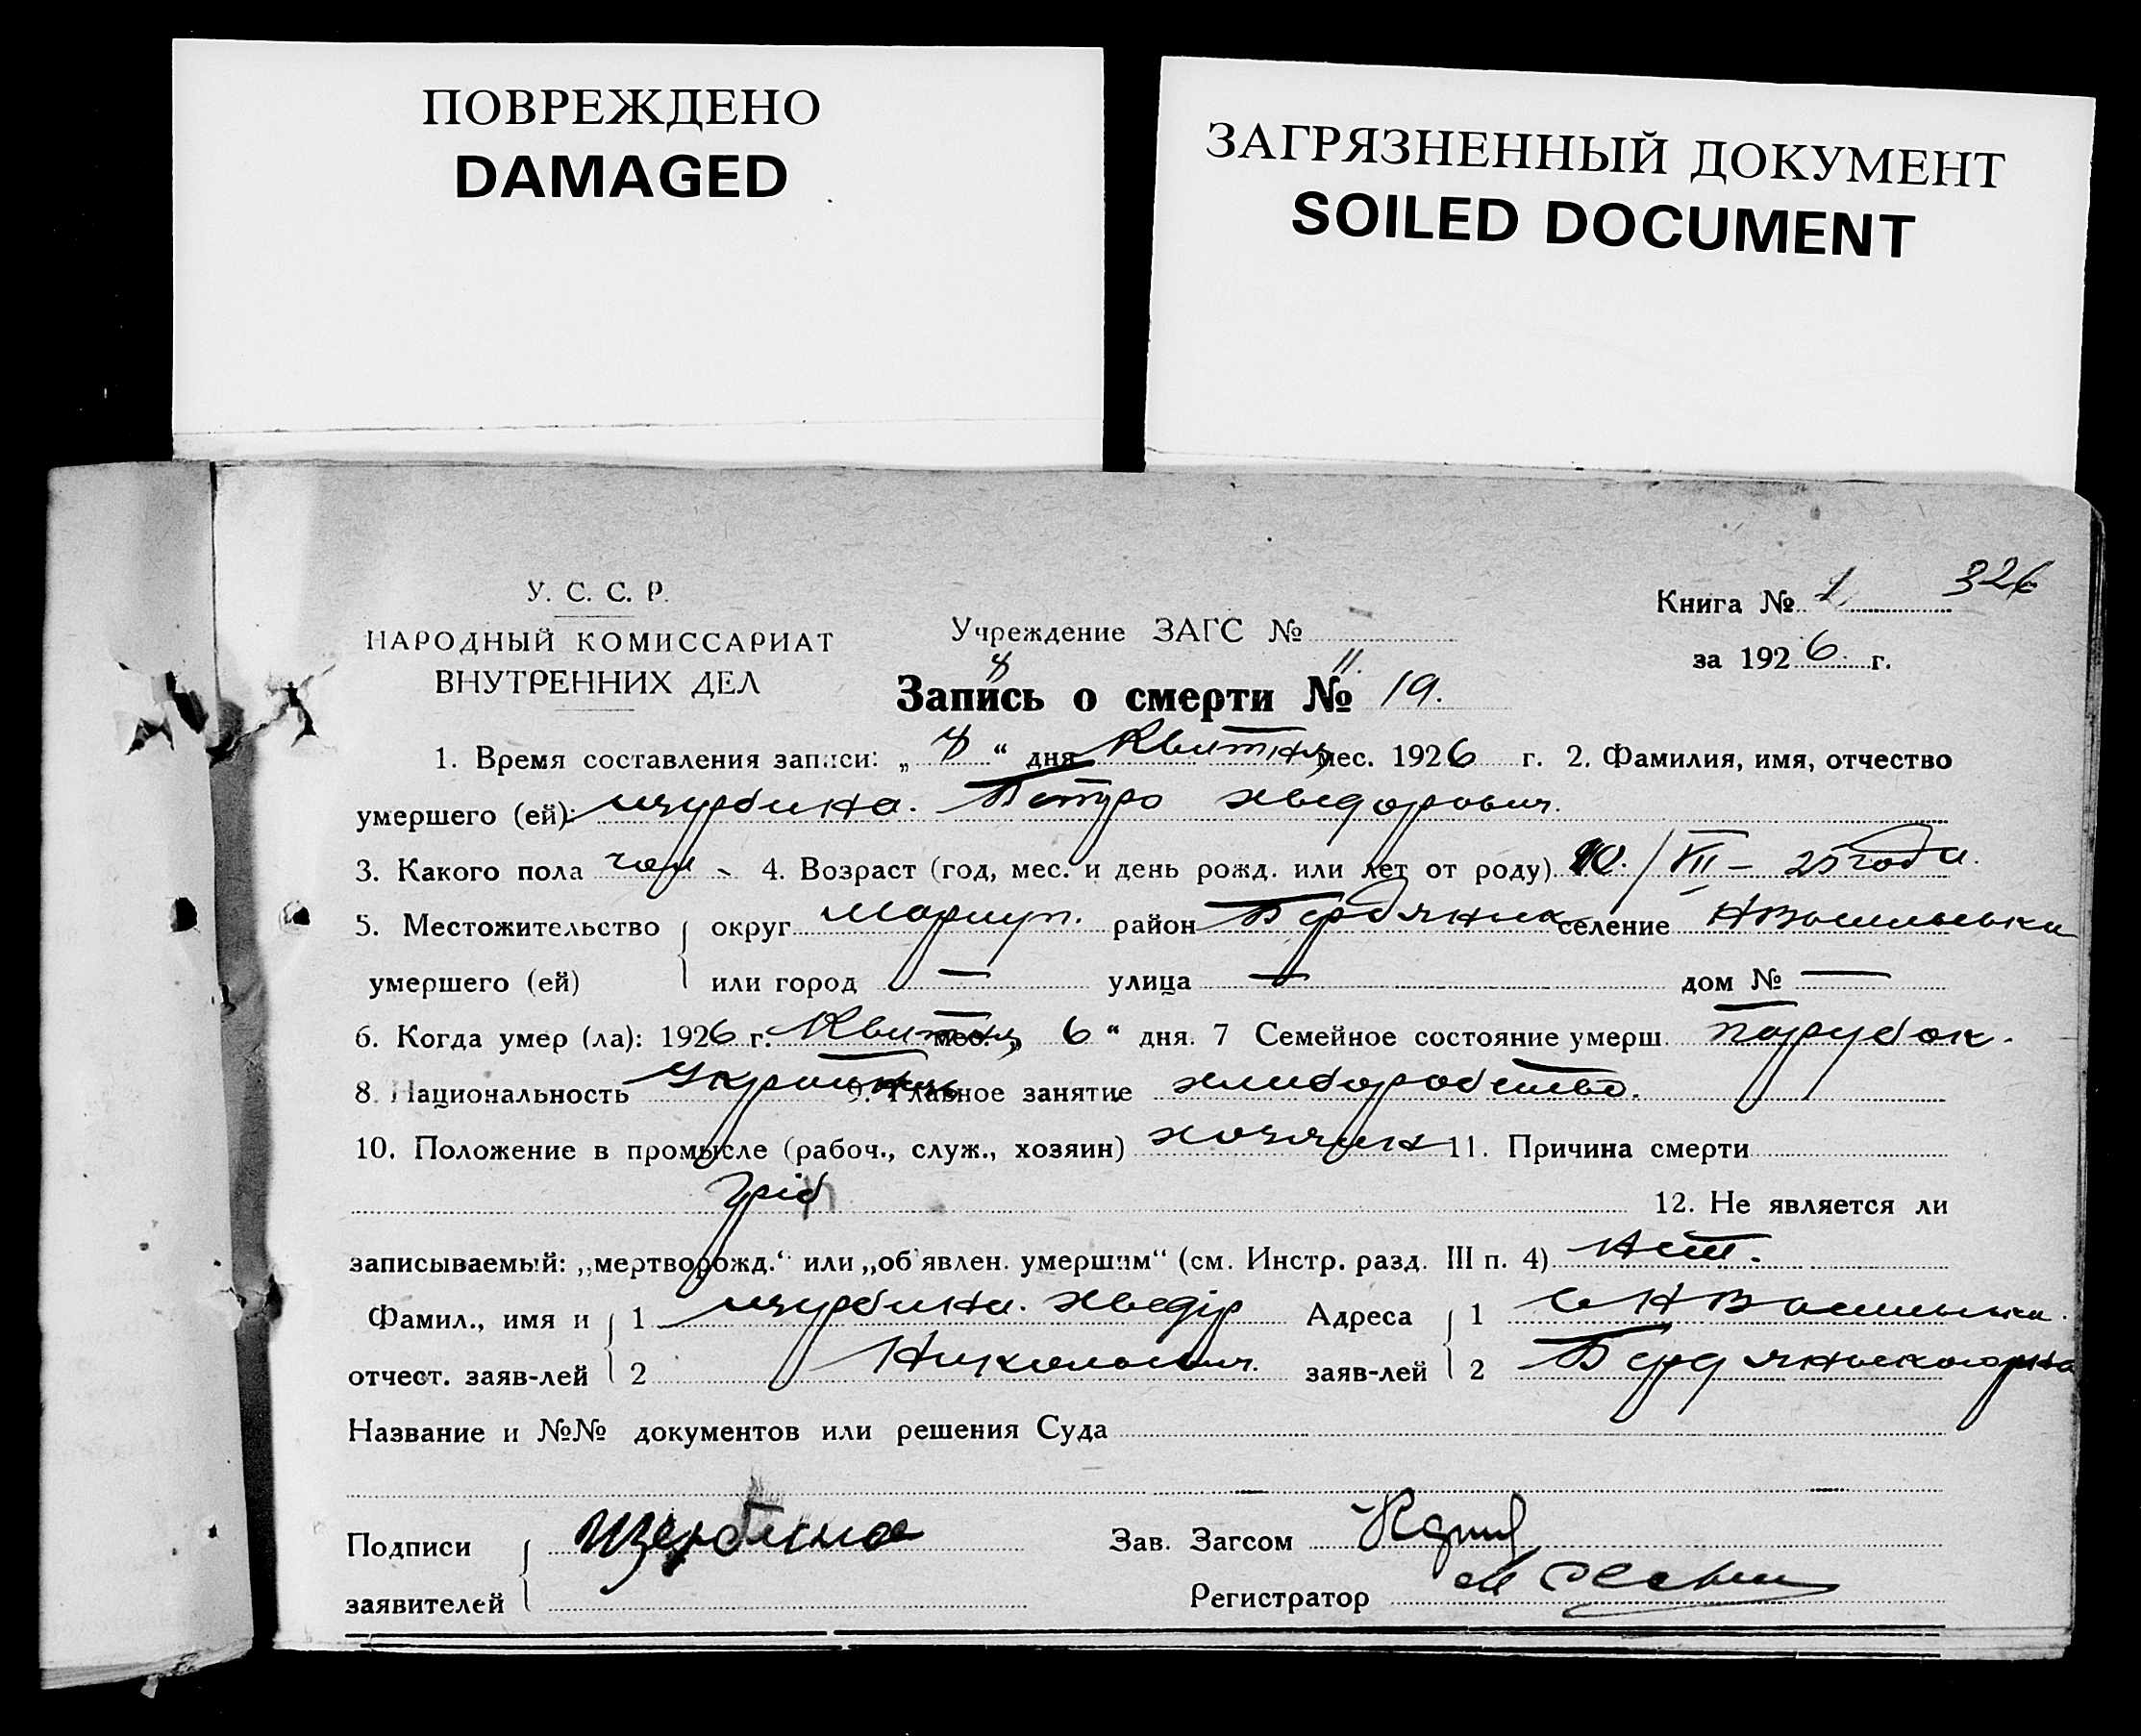 ПОВРЕЖДЕНО
DAMAGED
ЗАГРЯЗНЕННЫЙ ДОКУМЕНТ
SOILED DOCUMENT
У. С. С. Р.
НАРОДНЫЙ КОМИССАРИАТ
ВНУТРЕННИХ ДЕЛ
Учреждение ЗАГС №
Книга № 1 326
за 1926 г.
Запись о смерти № 19.
1. Время составления записи: „ 8 “ дня Квитня мес. 1926 г. 2. Фамилия, имя, отчество
умершего (ей): Щербина. Петро Хведорович.
3. Какого пола чол 4. Возраст (год, мес. и день рожд. или лет от роду) 10./VII – 25 года.
5. Местожительство округ Мариуп. район Бердянск селение НВасильевки
умершего (ей) или город — улица — дом № —
6. Когда умер (ла): 1926 г. Квитня мес. „ 6 “ дня. 7 Семейное состояние умерш. парубок.
8. Национальность Украинець 9. Главное занятие хлиборобство.
10. Положение в промысле (рабоч., служ., хозяин) хозяин 11. Причина смерти
12. Не является ли
записываемый: „мертворожд.“ или „об'явлен. умершим“ (см. Инстр. разд. III п. 4) Нет.
Фамил., имя и 1 Щербина. Хведір Адреса 1 С НВасильевки.
отчест. заяв-лей 2 Николаевич. заяв-лей 2 Бердянського рна
Название и №№ документов или решения Суда
Подписи Щербина Зав. Загсом
заявителей Регистратор